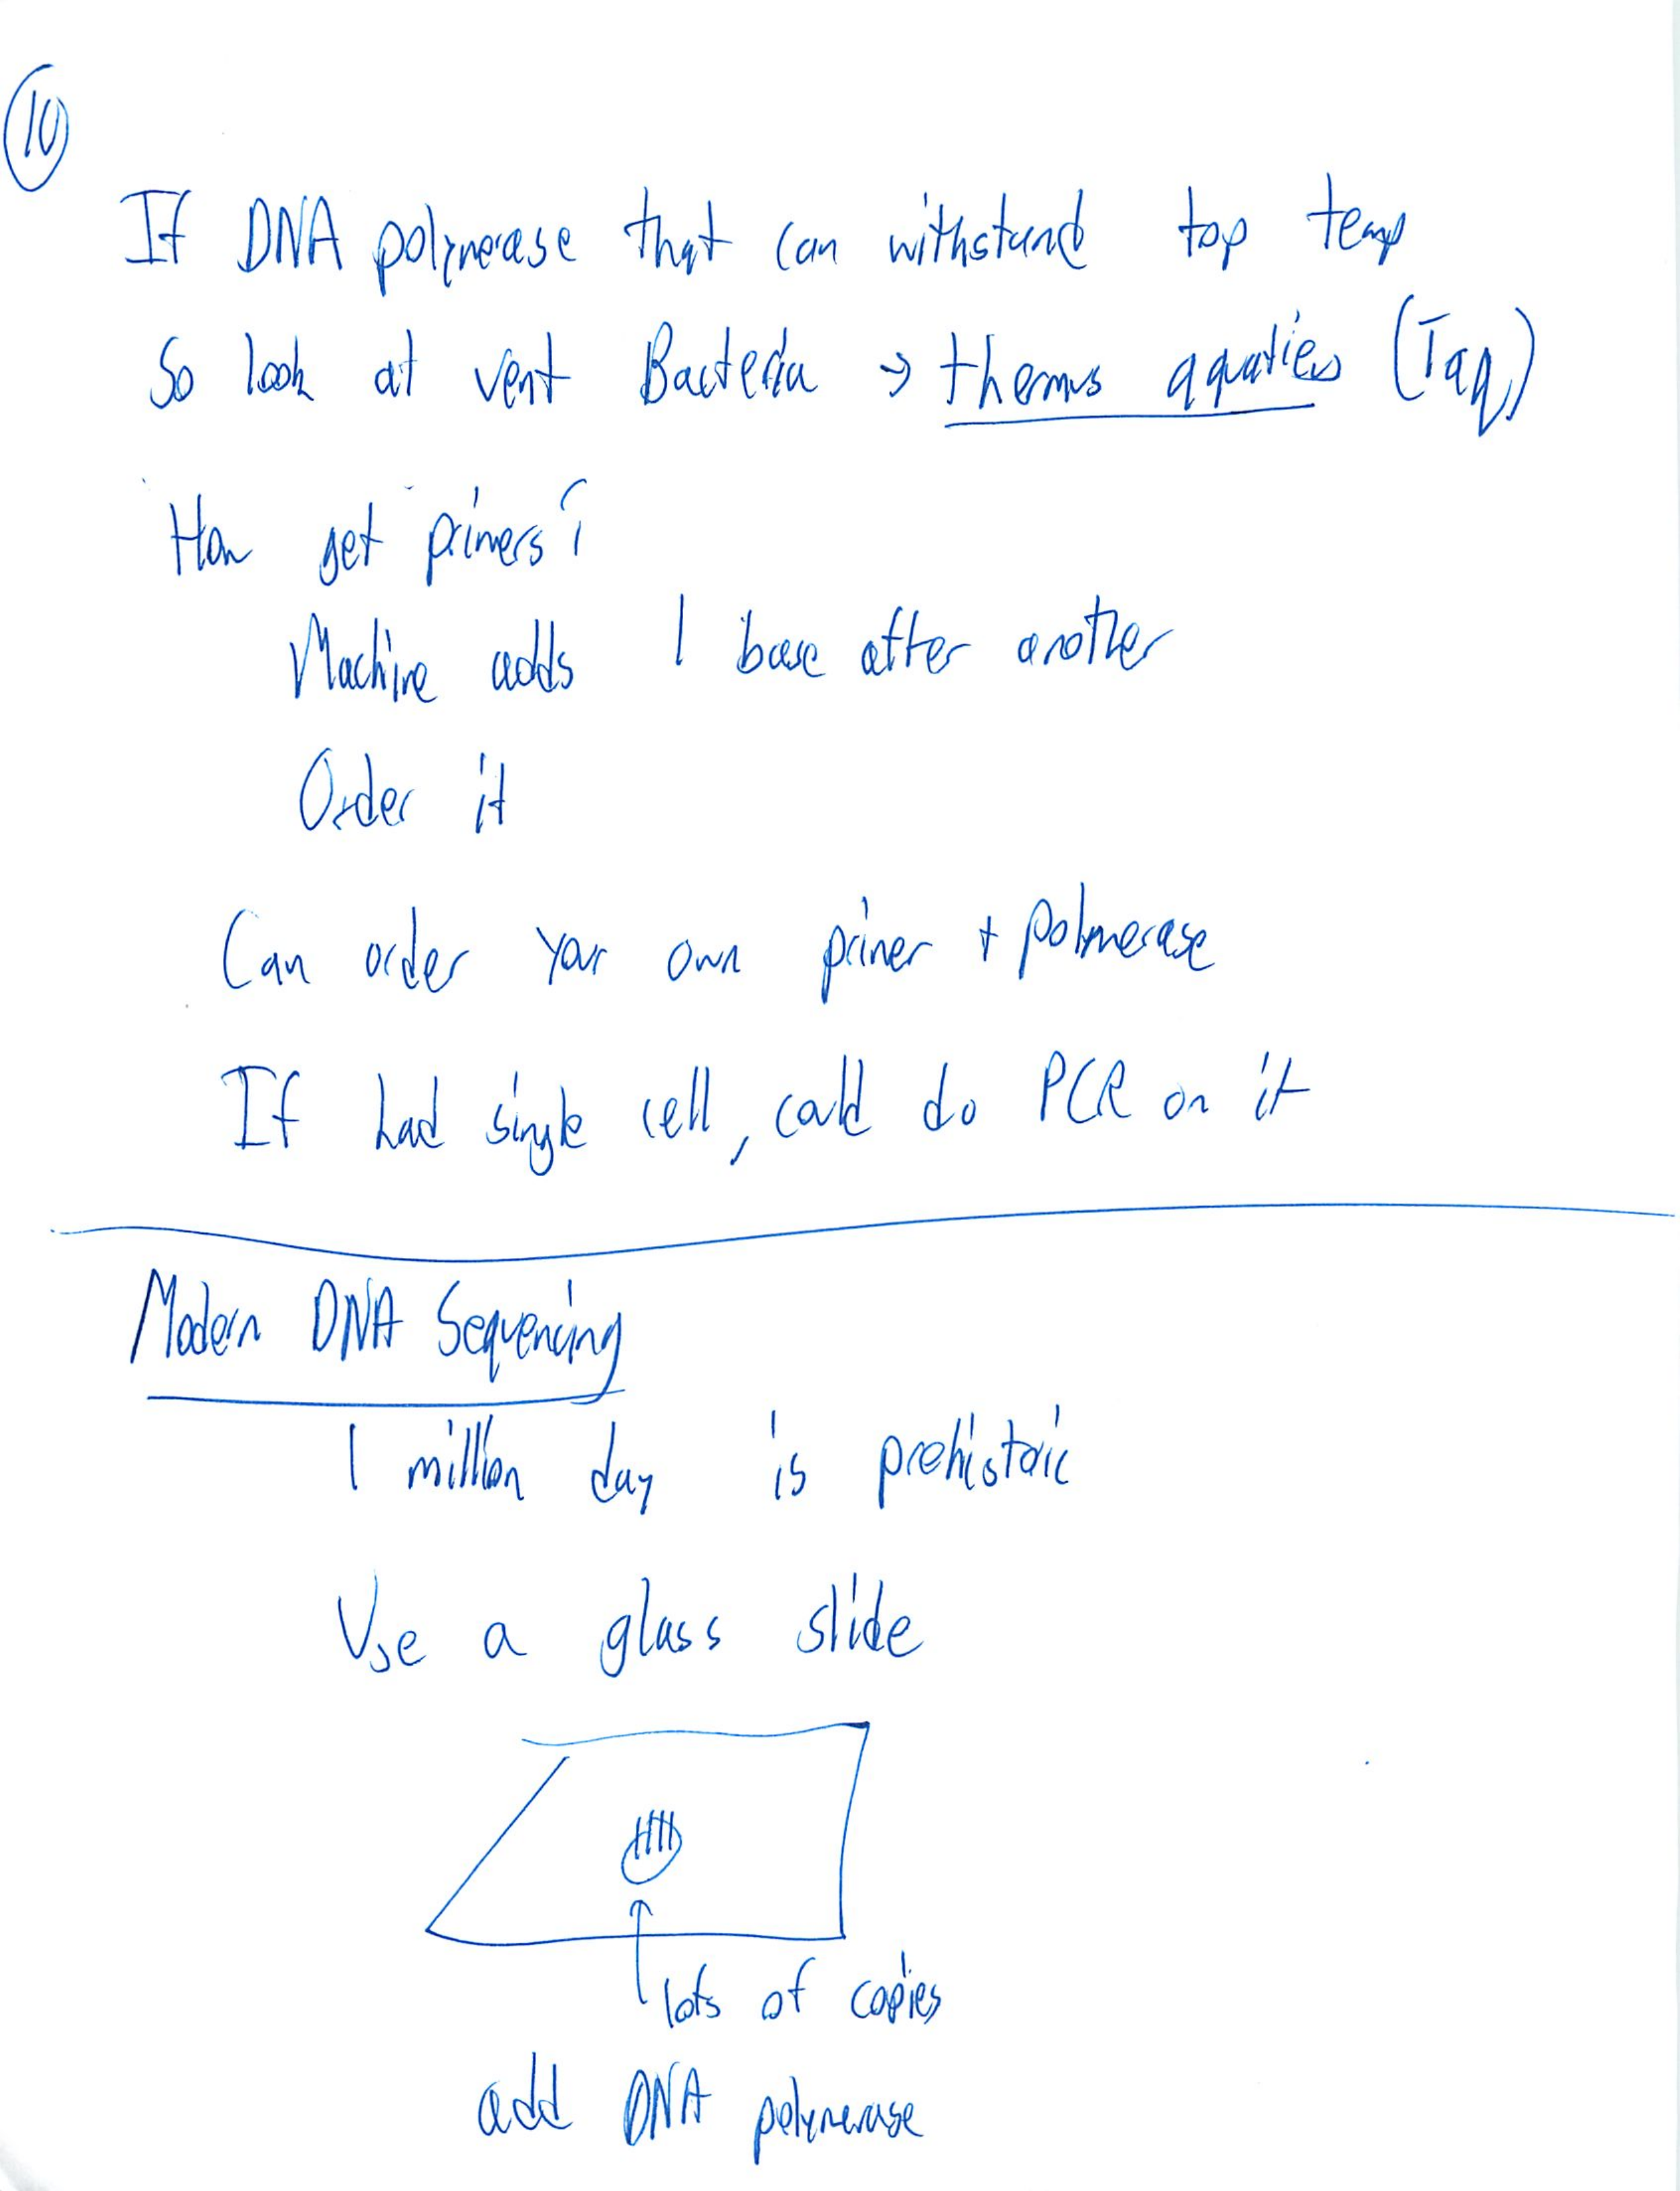 10
If DNA polymerase that can withstand top temp
So look at vent Bacteria → thermus aquaticus (Taq)
How get primers?
Machine adds 1 base after another
Order it
Can order your own primer + polymerase
If had single cell, could do PCR on it
Modern DNA Sequencing
1 million day is prehistoric
Use a glass slide
lots of copies
add DNA polymerase